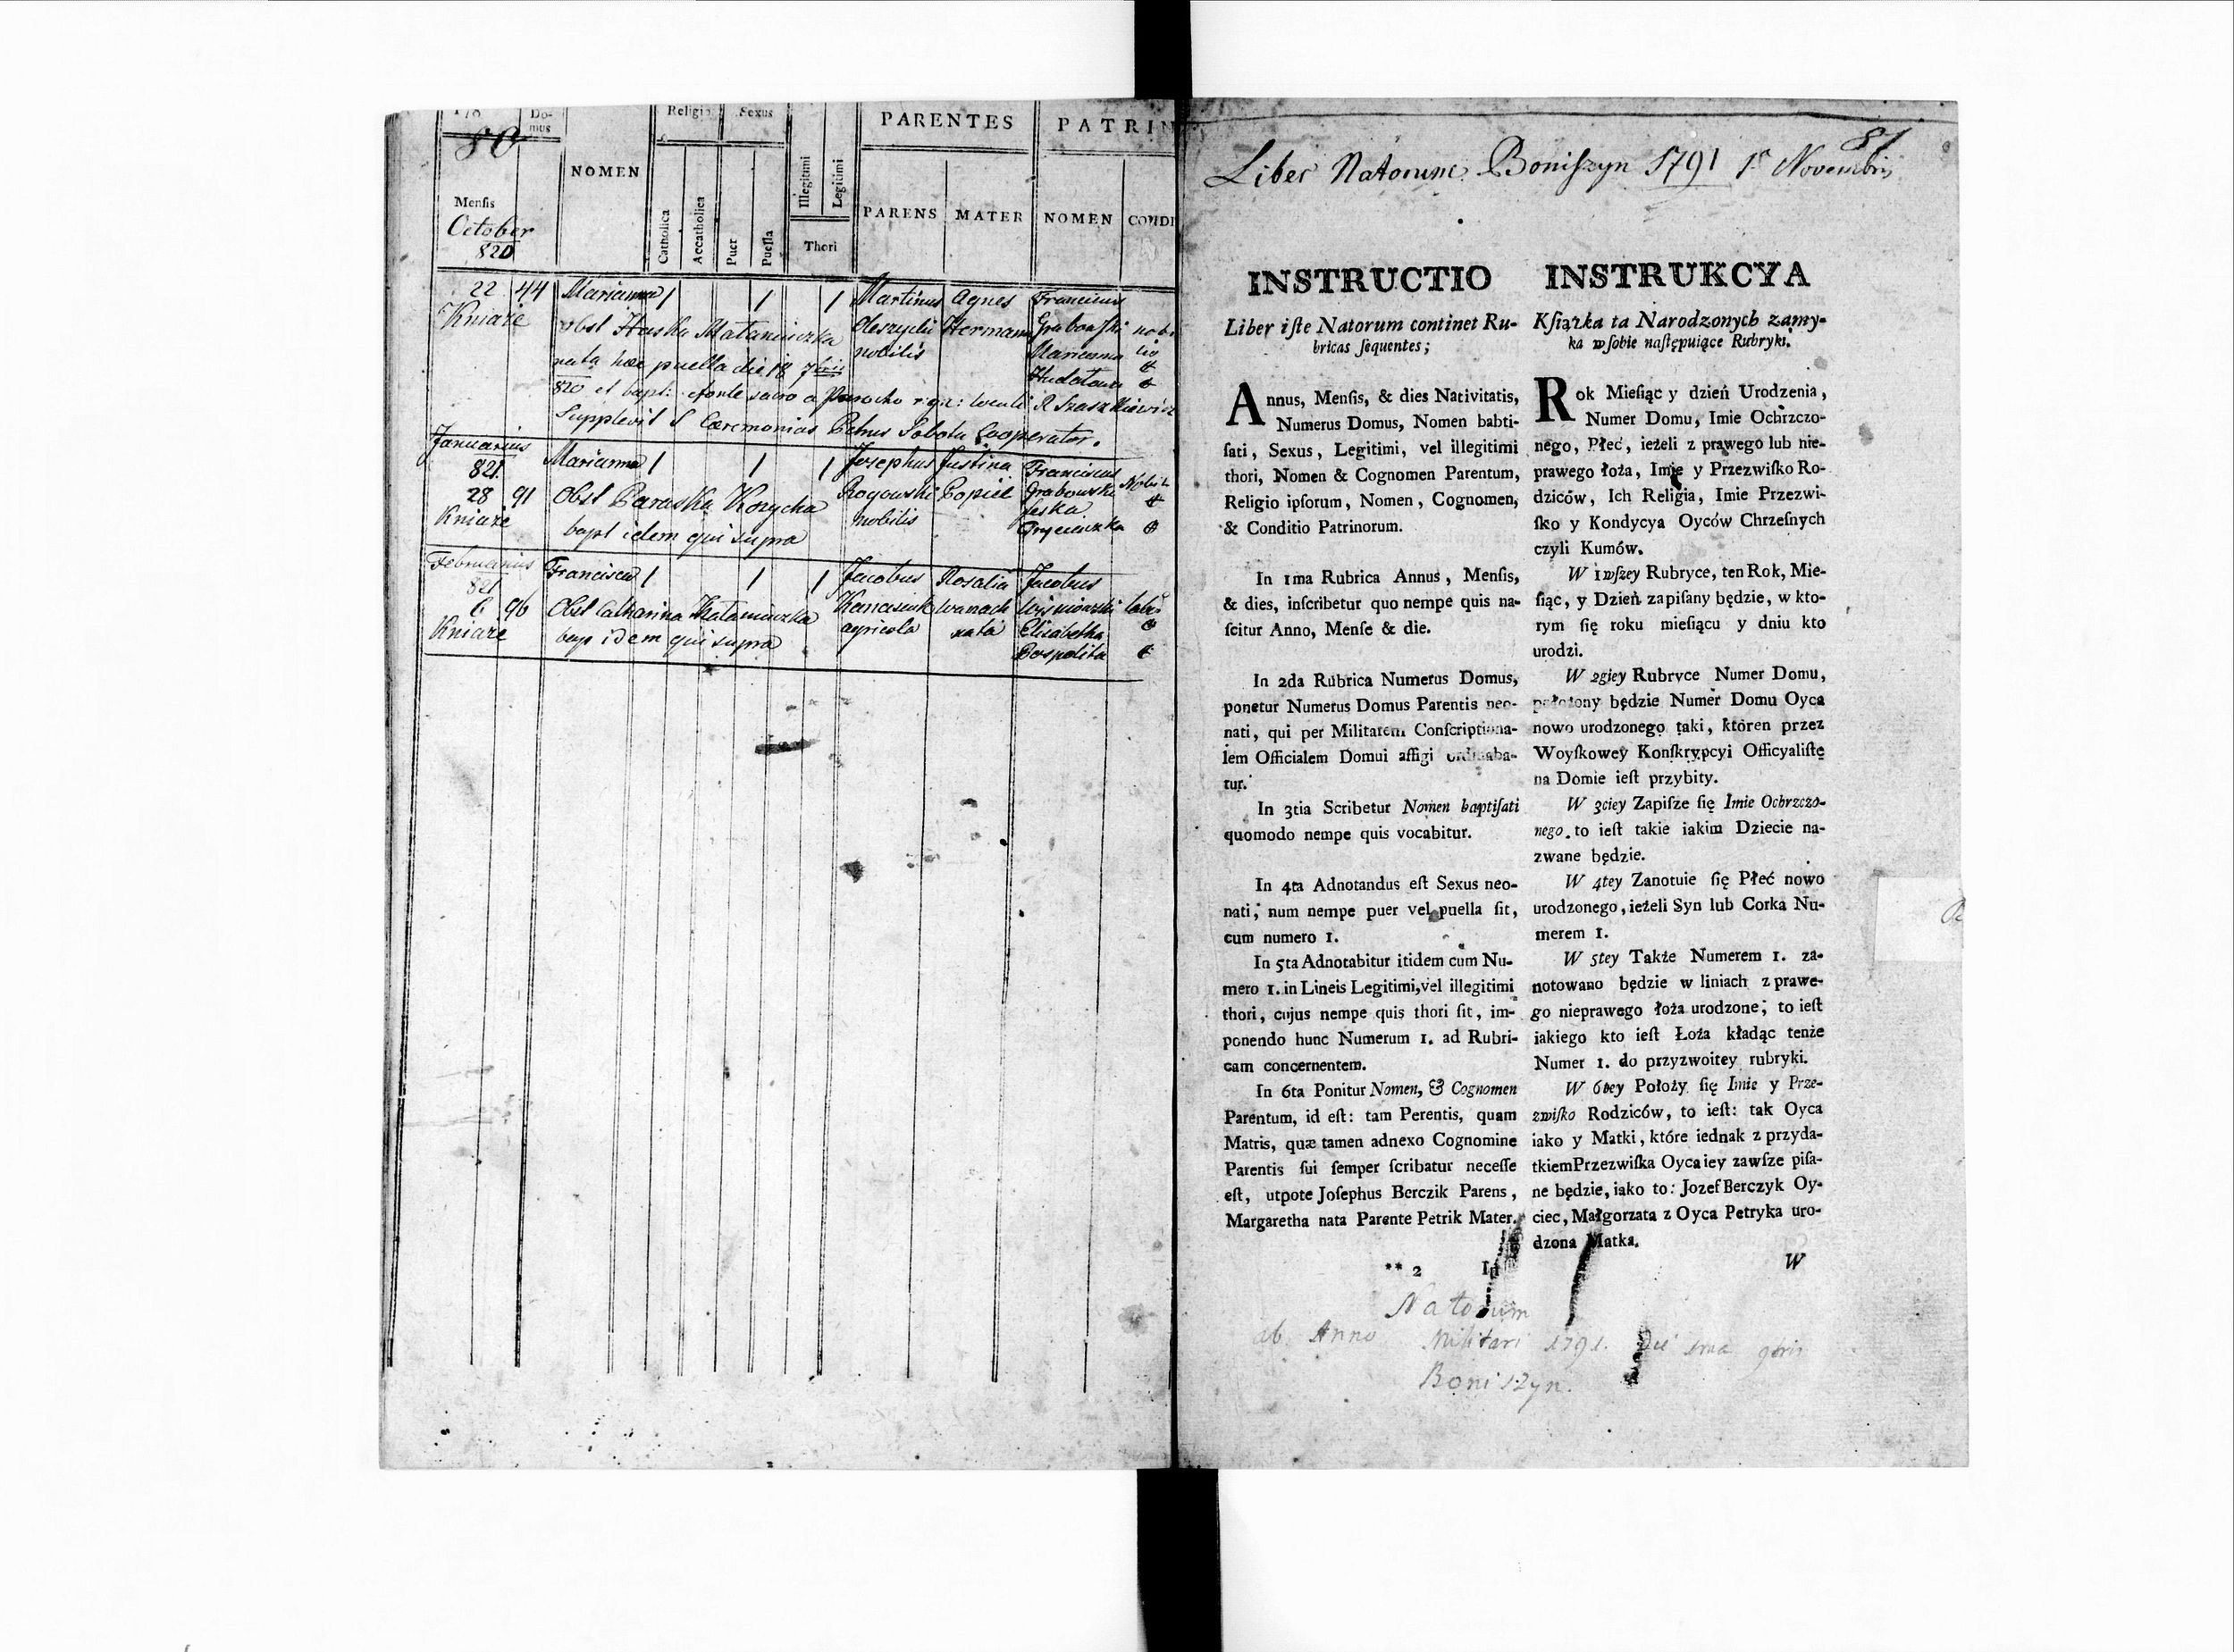 80
Do-
mus
Religio
Sexus
PARENTES
PATRIN
NOMEN
Illegitimi
Legitimi
Mensis
October
820
Catholica
Accatholica
Puer
Puella
Thori
PARENS
MATER
NOMEN
CONDI
22 44 Marianna 1 1 1 Martinus Agnes Franciscus
Kniaże obst Haska Nobilis Hermann Grabowski
nobilis Marianna
nata hæc puella die 18 7bris
820 et bapt: a fonte sacro a Parocho r: gr: loculi R Szaszkiewicz
Supplevit S Cæremonias Petrus Sobota Cooperator.
Januarius
821. Marianna 1 1 1 Josephus Justina Franciscus
28 91 Obst Paraska Kozycha Rogowski Popiel Grabowski
Kniaże nobilis
bapt idem qui supra
Februarius
821 Francisca 1 1 1 Jacobus Rosalia Jacobus
6 96 Obst Catharina
Kniaże bap idem qui supra agricola nata Elisabetha
Pospolita
81
Liber Natorum Boniſzyn 1791 1a Novembris
INSTRUCTIO
Liber iſte Natorum continet Ru-
bricas ſequentes;
Annus, Menſis, & dies Nativitatis,
Numerus Domus, Nomen babti-
ſati, Sexus, Legitimi, vel illegitimi
thori, Nomen & Cognomen Parentum,
Religio ipſorum, Nomen, Cognomen,
& Conditio Patrinorum.
In 1ma Rubrica Annus, Menſis,
& dies, inſcribetur quo nempe quis na-
ſcitur Anno, Menſe & die.
In 2da Rubrica Numerus Domus,
ponetur Numerus Domus Parentis neo-
nati, qui per Militarem Conſcriptiona-
lem Officialem Domui affigi ordinaba-
tur.
In 3tia Scribetur Nomen baptiſati
quomodo nempe quis vocabitur.
In 4ta Adnotandus eſt Sexus neo-
nati, num nempe puer vel puella ſit,
cum numero 1.
In 5ta Adnotabitur itidem cum Nu-
mero 1. in Lineis Legitimi, vel illegitimi
thori, cujus nempe quis thori ſit, im-
ponendo hunc Numerum 1. ad Rubri-
cam concernentem.
In 6ta Ponitur Nomen, & Cognomen
Parentum, id eſt: tam Perentis, quam
Matris, quæ tamen adnexo Cognomine
Parentis ſui ſemper ſcribatur neceſſe
eſt, utpote Joſephus Berczik Parens,
Margaretha nata Parente Petrik Mater.
** 2 In
INSTRUKCYA
Kſiążka ta Narodzonych zamy-
ka w ſobie naſtępuiące Rubryki.
Rok Mieſiąc y dzień Urodzenia,
Numer Domu, Imie Ochrzczo-
nego, Płeć, ieżeli z prawego lub nie-
prawego łoża, Imię y Przezwiſko Ro-
dziców, Ich Religia, Imie Przezwi-
ſko y Kondycya Oyców Chrzeſnych
czyli Kumów.
W 1wſzey Rubryce, ten Rok, Mie-
ſiąc, y Dzień zapiſany będzie, w kto-
rym się roku mieſiącu y dniu kto
urodzi.
W 2giey Rubryce Numer Domu,
położony będzie Numer Domu Oyca
nowo urodzonego taki, ktoren przez
Woyſkowey Konſkrypcyi Officyaliſtę
na Domie ieſt przybity.
W 3ciey Zapiſze ſię Imie Ochrzczo-
nego. to ieſt takie iakim Dziecie na-
zwane będzie.
W 4tey Zanotuie ſię Płeć nowo
urodzonego, ieżeli Syn lub Corka Nu-
merem 1.
W 5tey Także Numerem 1. za-
notowano będzie w liniach z prawe-
go nieprawego łoża urodzone; to ieſt
iakiego kto ieſt Łoża kładąc tenże
Numer 1. do przyzwoitey rubryki.
W 6tey Położy ſię Imie y Prze-
zwiſko Rodziców, to ieſt: tak Oyca
iako y Matki, które iednak z przyda-
tkiem Przezwiſka Oyca iey zawſze piſa-
ne będzie, iako to: Jozef Berczyk Oy-
ciec, Małgorzata z Oyca Petryka uro-
dzona Matka.
W
Natorum
ab Anno Militari 1791. Die 1ma 9bris
Boniszyn.